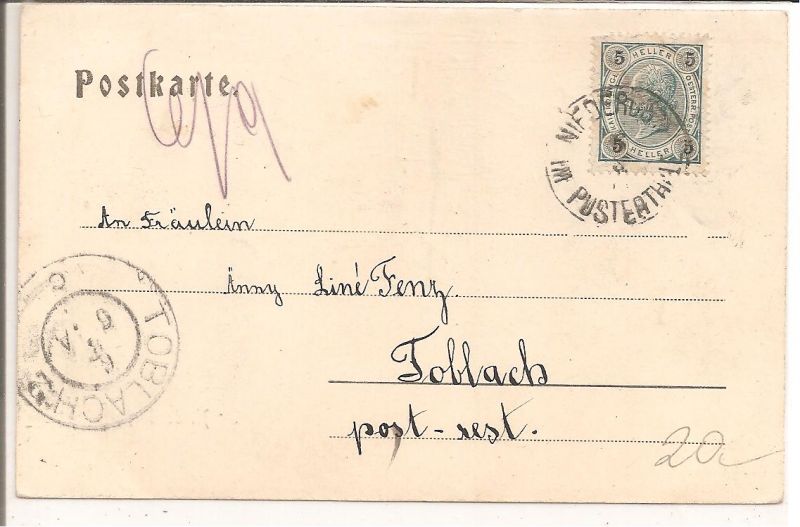 Postkarte.
5 HELLER 5
OESTERR. POST
5 HELLER 5
NIEDERDORF
IM PUSTERTHAL
An Fräulein
Änny Liné Fenz
Toblach
post-rest.
TOBLACH
20